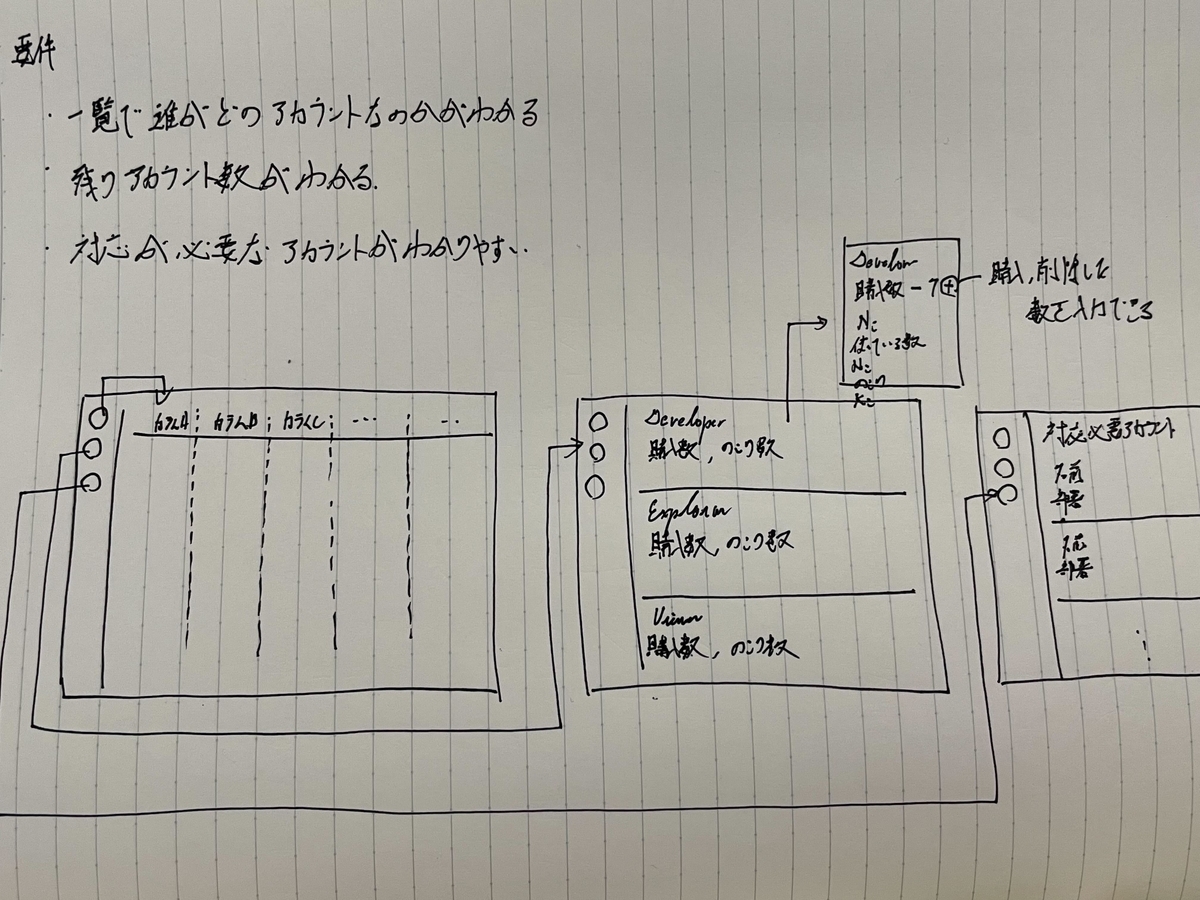 要件
・一覧で誰がどのアカウントなのかがわかる
・残りアカウント数がわかる.
・対応が必要なアカウントがわかりやすい.
Develor
購入数 - 7 +
Nこ
使っている数
Nこ
のこり
Kこ
購入,削除した
数を入力できる
カラムA カラムB カラムC --- --
Developer
購入数, のこり数
Explorer
購入数, のこり数
Viewer
購入数, のこり数
対応必要アカウント
名前
部署
名前
部署